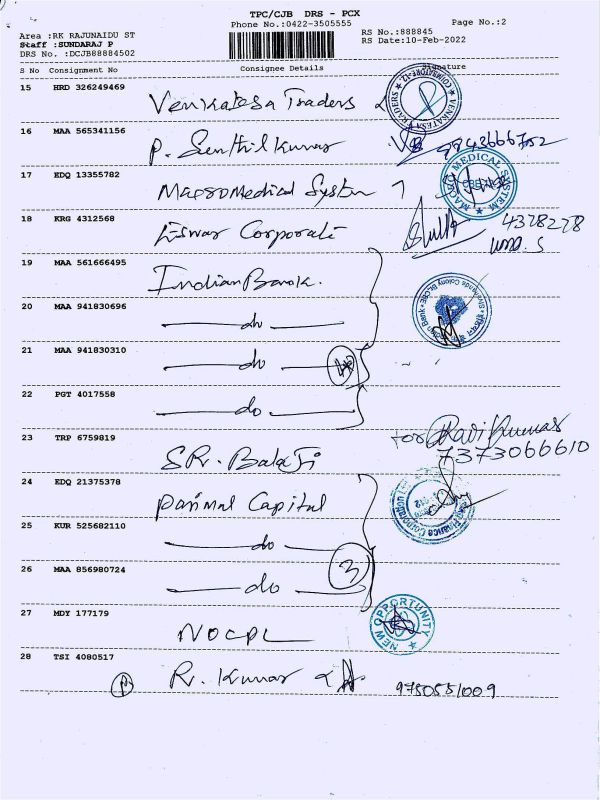 TPC/CJB DRS - PCX
Phone No.:0422-3505555
Page No.:2
Area :RK RAJUNAIDU ST
RS No.:888845
Staff :SUNDARAJ P
RS Date:10-Feb-2022
DRS No. :DCJB88884502
S No Consignment No Consignee Details Signature
15 HRD 326249469 Venkatesa Traders
16 MAA 565341156 P. Senthil Kumar
17 EDQ 13355782
18 KRG 4312568 Eswar Corporati
19 MAA 561666495 Indian Bank.
20 MAA 941830696 do
21 MAA 941830310 do
22 PGT 4017558 do
23 TRP 6759819 SR. Balaji for Ravi Kumar
7373066610
24 EDQ 21375378 Capital
25 KUR 525682110 do
26 MAA 856980724 do 3
27 MDY 177179 NOCPL NEW OPPORTUNITY
28 TSI 4080517 R. Kumar 9750551009